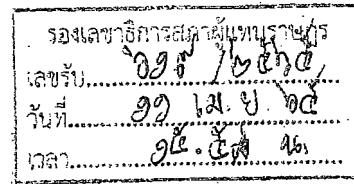 รองเลขาธิการสภาผู้แทนราษฎร
เลขรับ............../๒๕๖๕
วันที่ ๑๑ เม.ย. ๖๕
เวลา ๑๕.๕๘ น.